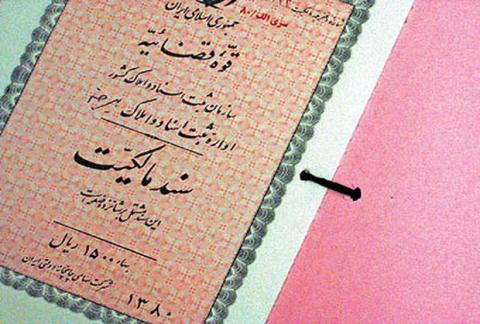 جمهوری اسلامی ایران
قوّه قضائیه
سازمان ثبت اسناد و املاک کشور
اداره ثبت اسناد و املاک
سند مالکیّت
این سند مشتمل بر شانزده صفحه است
بهاء ۱۵۰۰ ریال
شرکت سهامی چاپخانه دولتی ایران
۱۳۸۰